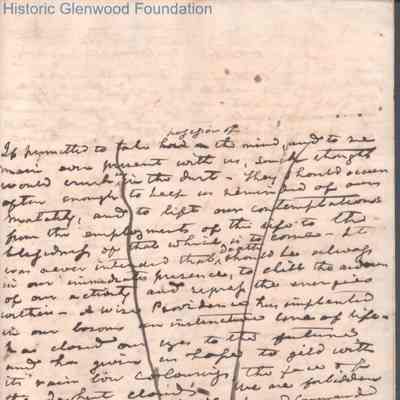 Historic Glenwood Foundation
possession of
If permitted to take hold on the mind, and to re
main ever present with us, such thought
would crush in the dust - They should occur
often enough to keep us reminded of our
mortality, and to lift our contemplations
from the employments of this life to the
blessedness of that which is to come - It
was never intended that death should be always
in our immediate presence, to chill the ardour
of our activity and repress the energies
within - A wise Providence has implanted
in our bosoms an instinctive love of life -
has closed our eyes to the future
and has given us hope to gild with
its rain bow colourings, the face of
the darkest clouds. We are forbidden